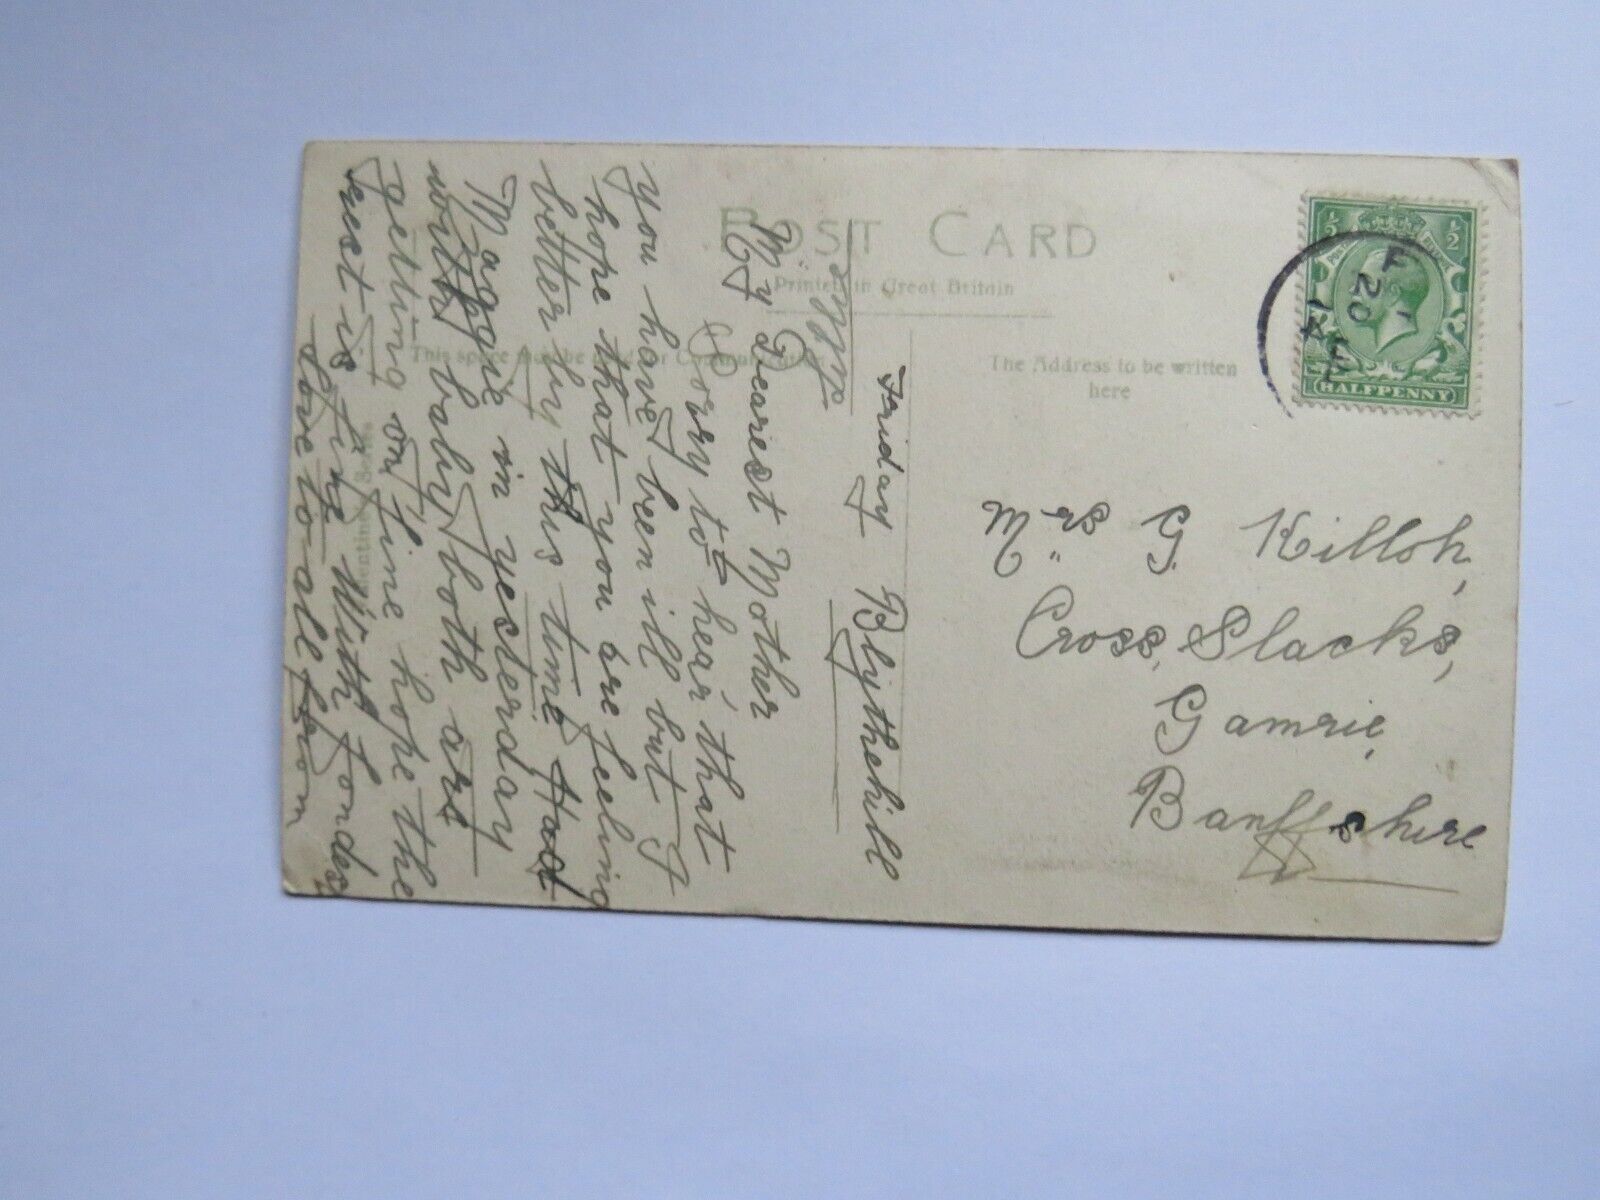 POST CARD
Printed in Great Britain
This space may be used for Communication
The Address to be written
here
½ ½
HALFPENNY
Mrs G Killoh,
Cross, Slacks,
Gamrie,
Banffshire
Friday Blythehill
My Dearest Mother
Sorry to hear that
you have been ill but I
hope that you are feeling
better by this time Had
Maggie in yesterday
with baby both are
getting on fine hope the
rest is fine With fondest
love to all from